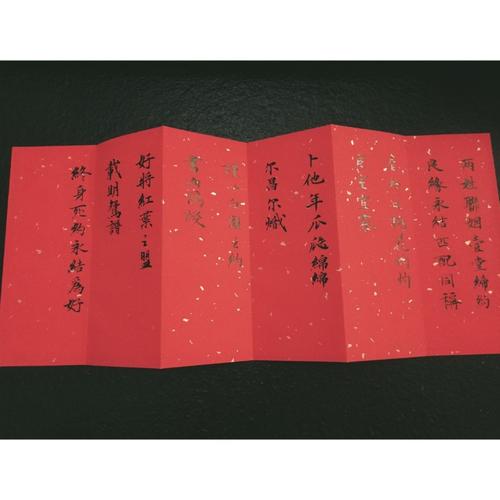 兩姓聯姻壹堂締約
良緣永結匹配同稱
看此日桃花灼灼
宜室宜家
卜他年瓜瓞綿綿
尔昌尔熾
謹以白頭之約
書向鴻箋
好將紅葉之盟
載明鴛譜
終身所約永結為好